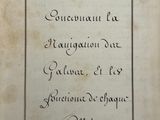 Concernant la
Navigation des
Galères, et les
fonctions de chaque